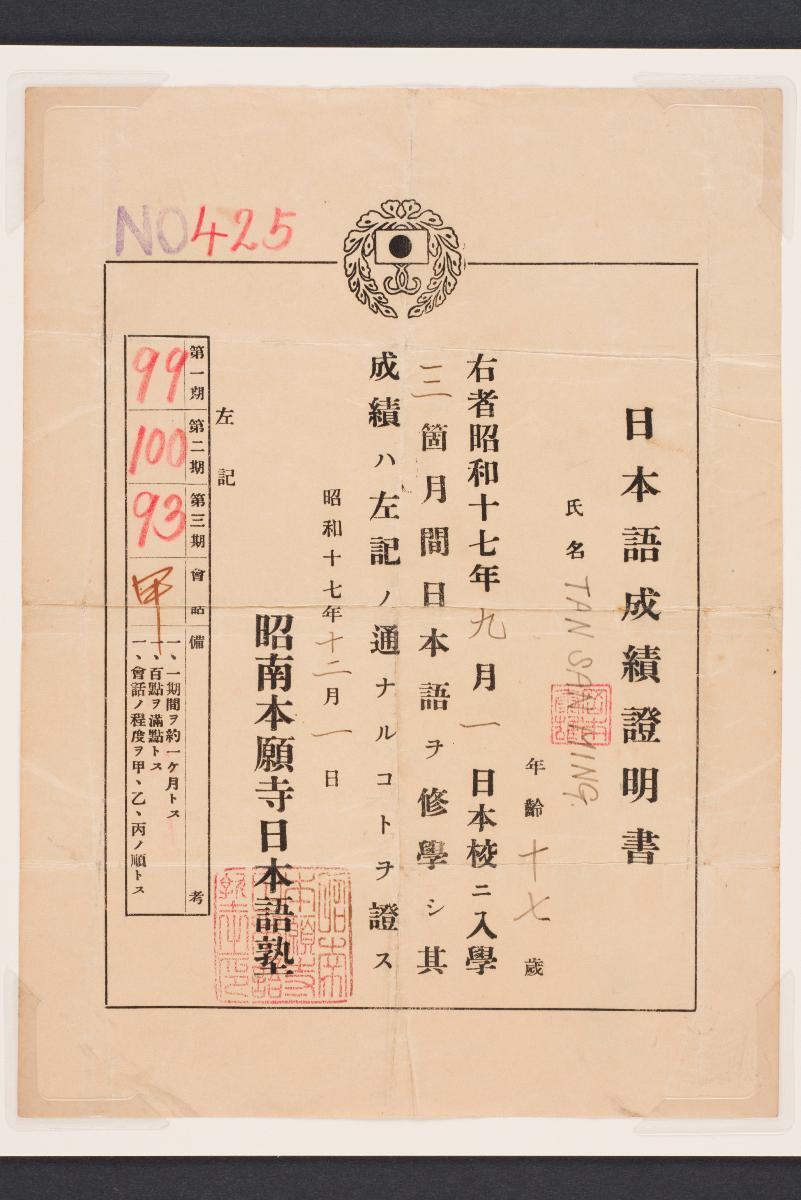 NO 425
日本語成績證明書
氏名 TAN SAN MING.
年齡 十七 歲
右者昭和十七年九月一日本校ニ入學
三箇月間日本語ヲ修學シ其
成績ハ左記ノ通ナルコトヲ證ス
昭和十七年十二月一日
昭南本願寺日本語塾
左記
第一期 第二期 第三期 會話 備考
99 100 93 甲
一、一期間ヲ約一ケ月トス
一、百點ヲ滿點トス
一、會話ノ程度ヲ甲、乙、丙ノ順トス